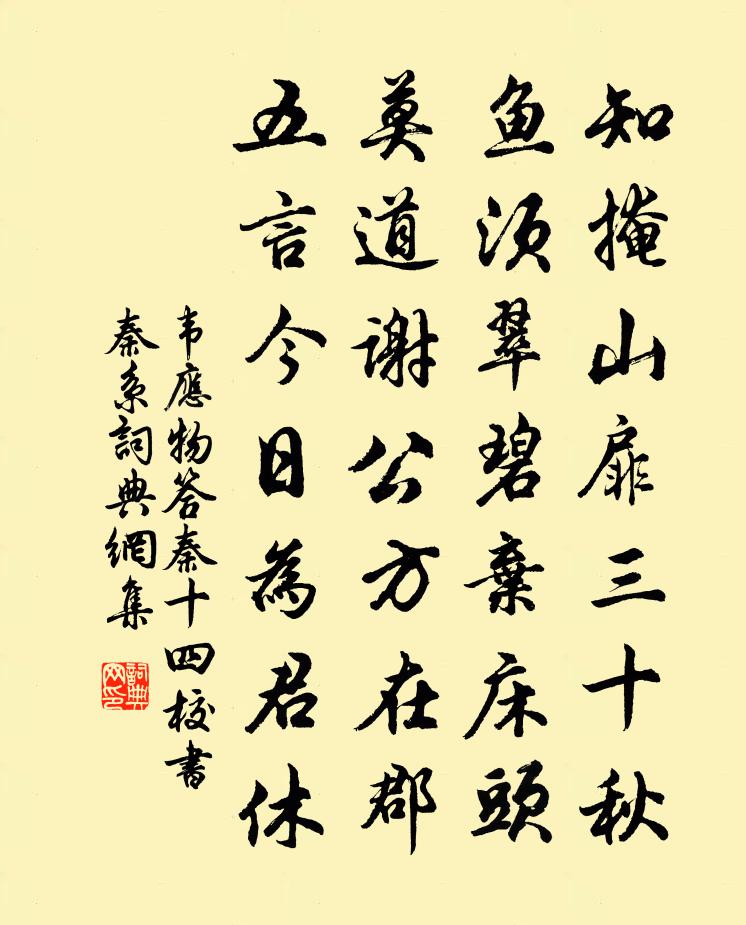 知掩山扉三十秋
鱼须翠碧棄床頭
莫道謝公方在郡
五言今日為君休
韦應物答秦十四校書
秦系詞典網集
詞典網印